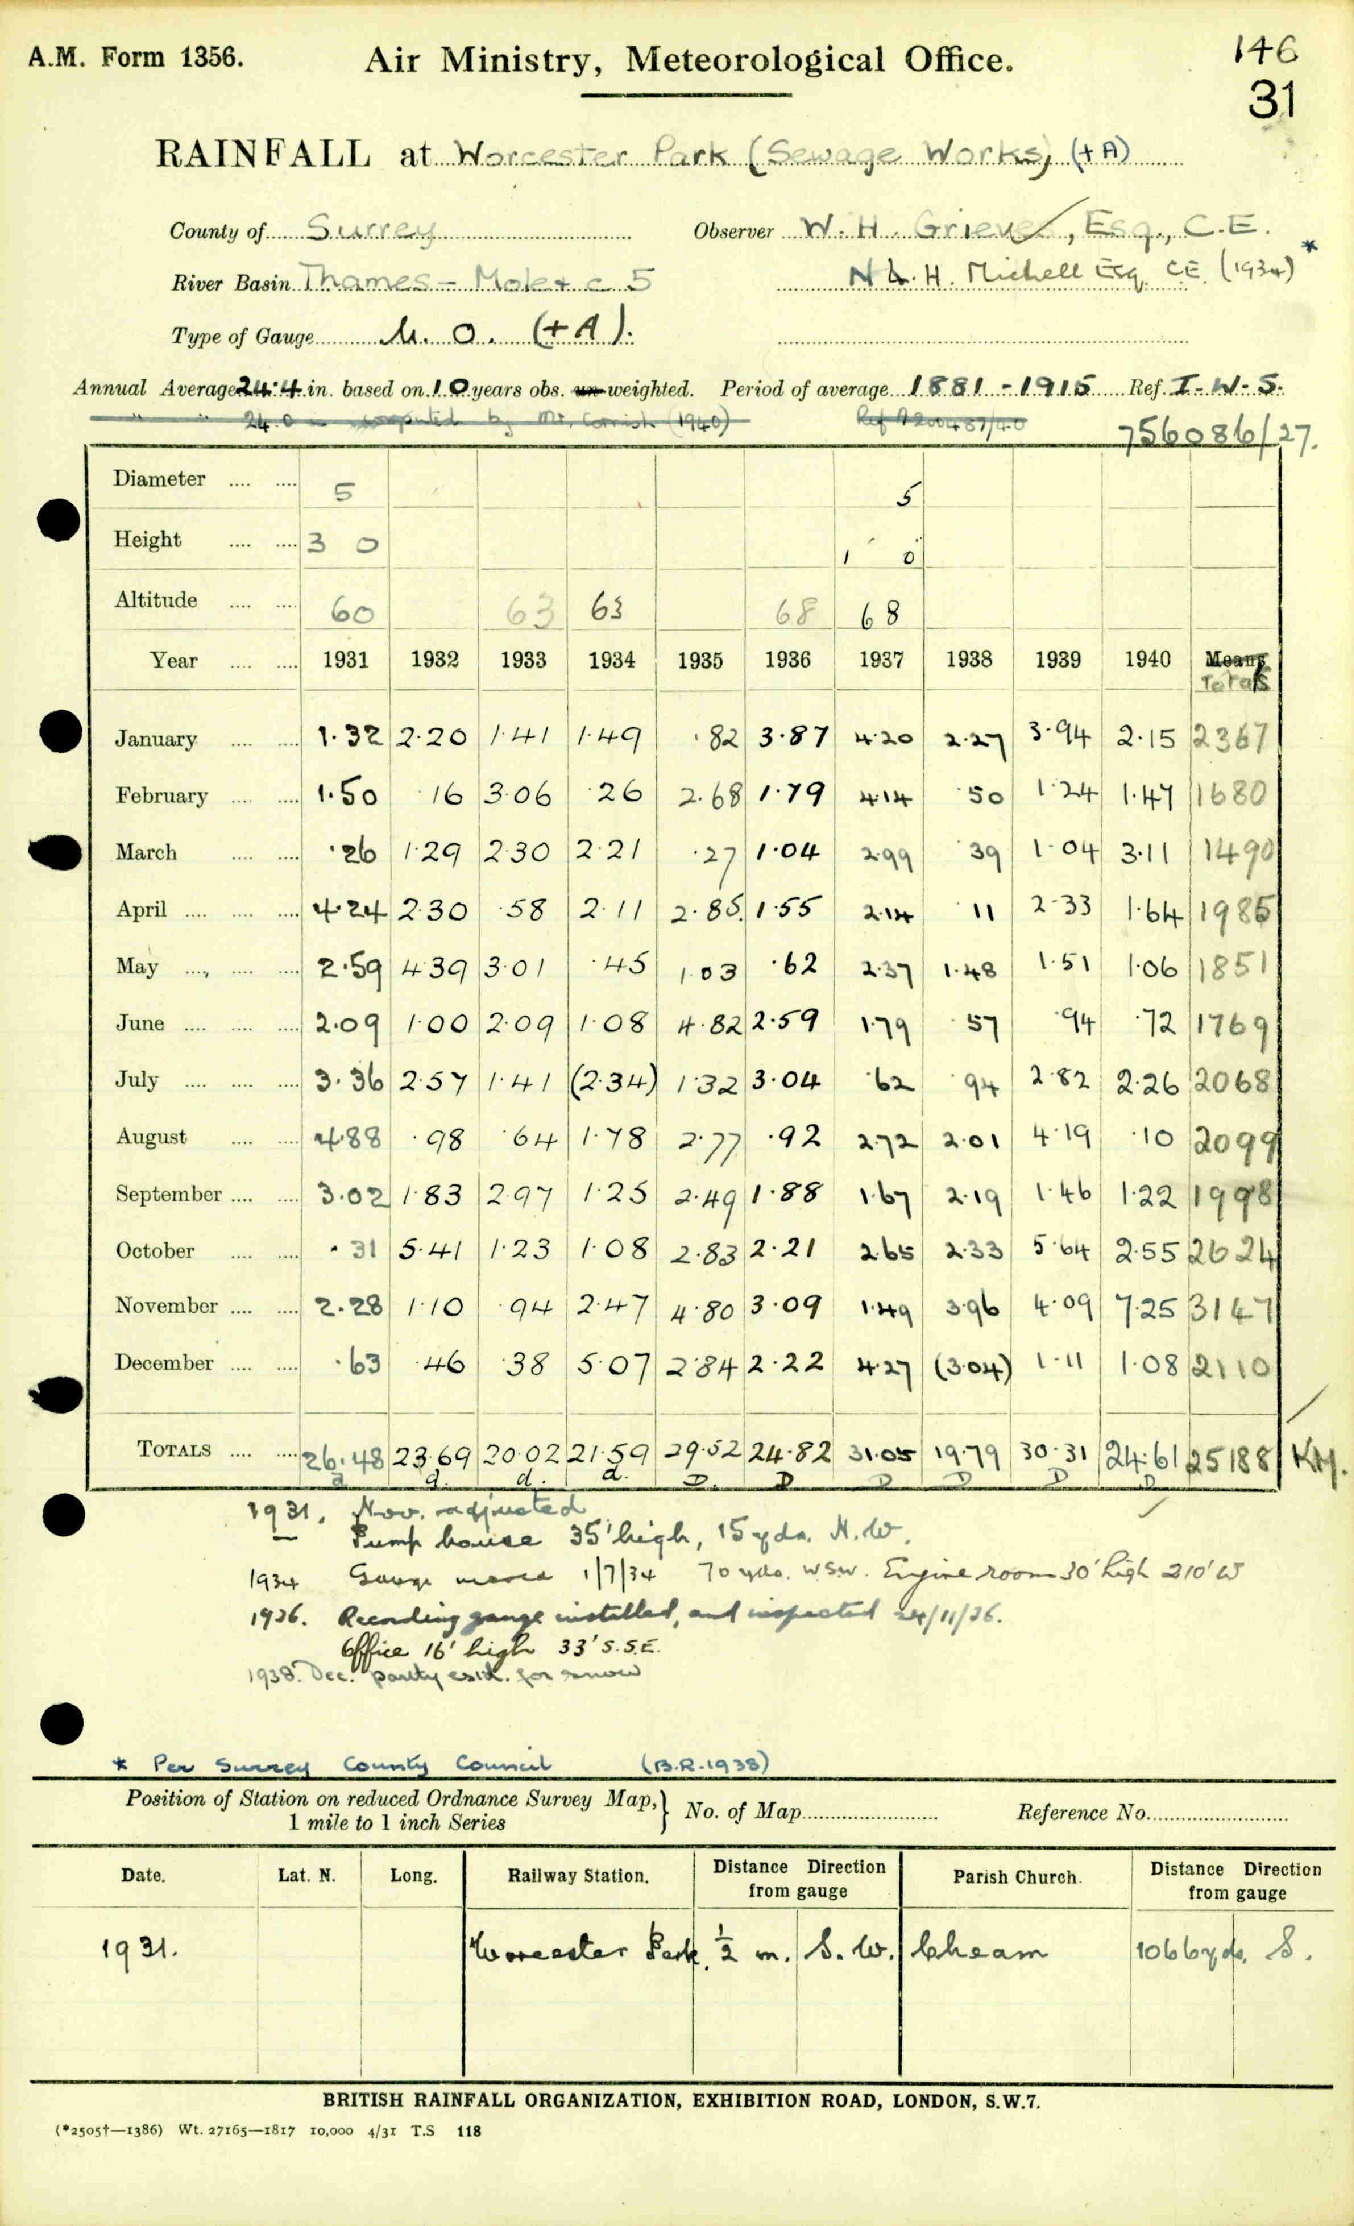 A.M. Form 1356. Air Ministry, Meteorological Office. 146
31
RAINFALL at Worcester Park (Sewage Works) (+A)
County of Surrey Observer W. H. Grieves, Esq., C.E. *
River Basin Thames - Mole + c 5 N L. H. Michell Esq. C.E. (1934)
Type of Gauge M. O. (+A).
Annual Average 24.4 in. based on 10 years obs. un-weighted. Period of average 1881 - 1915 Ref. I. W. S.
" " 24.0 computed by Mr. Cornish (1940)
756086/27.
Diameter 5 5
Height 3 0 1 0
Altitude 60 63 63 68 68
Year 1931 1932 1933 1934 1935 1936 1937 1938 1939 1940 Means
Totals
January 1.32 2.20 1.41 1.49 .82 3.87 4.20 2.27 3.94 2.15 2367
February 1.50 .16 3.06 .26 2.68 1.79 4.14 .50 1.24 1.47 1680
March .26 1.29 2.30 2.21 .27 1.04 2.99 .39 1.04 3.11 1490
April 4.24 2.30 .58 2.11 2.85 1.55 2.14 .11 2.33 1.64 1985
May 2.59 4.39 3.01 .45 1.03 .62 2.37 1.48 1.51 1.06 1851
June 2.09 1.00 2.09 1.08 4.82 2.59 1.79 .57 .94 .72 1769
July 3.36 2.57 1.41 (2.34) 1.32 3.04 .62 .94 2.82 2.26 2068
August 4.88 .98 .64 1.78 2.77 .92 2.72 2.01 4.19 .10 2099
September 3.02 1.83 2.97 1.25 2.49 1.88 1.67 2.19 1.46 1.22 1998
October .31 5.41 1.23 1.08 2.83 2.21 2.65 2.33 5.64 2.55 2624
November 2.28 1.10 .94 2.47 4.80 3.09 1.49 3.96 4.09 7.25 3147
December .63 .46 .38 5.07 2.84 2.22 4.27 (3.04) 1.11 1.08 2110
TOTALS 26.48 23.69 20.02 21.59 29.52 24.82 31.05 19.79 30.31 24.61 25188 KM.
a d. d. d. D. D D D D D
1931. Nov. adjusted
Pump house 35' high, 15 yds. N.W.
1934 Gauge moved 1/7/34 70 yds. W.S.W. Engine room 30' high 210' W
1936. Recording gauge installed, and inspected 24/11/36.
Office 16' high 33' S.S.E.
1938. Dec. partly estd. for snow
* Per Surrey County Council (B.R. 1938)
Position of Station on reduced Ordnance Survey Map, } No. of Map Reference No.
1 mile to 1 inch Series
Date. Lat. N. Long. Railway Station. Distance Direction from gauge Parish Church. Distance Direction from gauge
1931. Worcester Park. ½ m. S.W. Cheam 1066 yds. S.
BRITISH RAINFALL ORGANIZATION, EXHIBITION ROAD, LONDON, S.W.7.
(*2505†—1386) Wt. 27165—1817 10,000 4/31 T.S 118